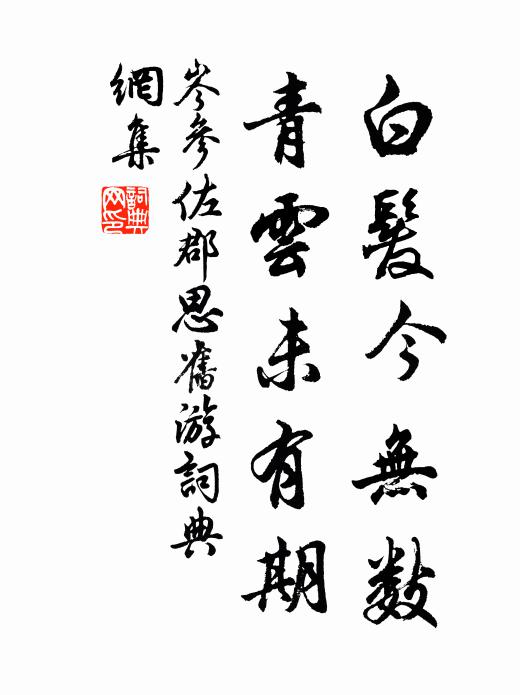 白髮今無数
青雲未有期
岑參佐郡思舊游詞典
網集
詞典
网印